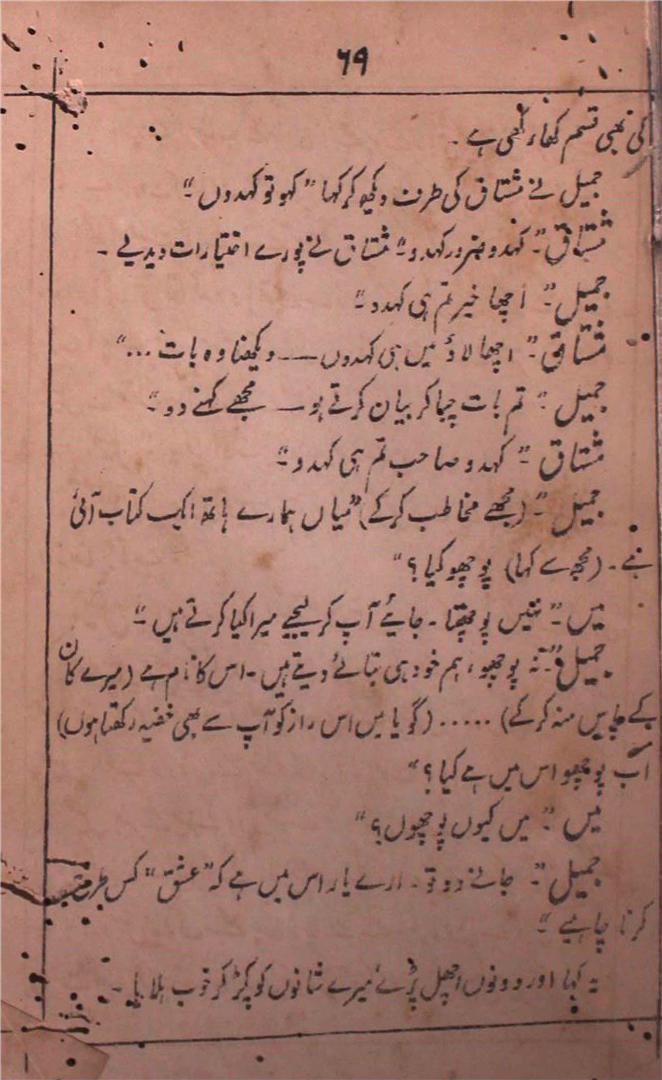 ۶۹
کی بھی قسم کھا رکھی ہے۔
جمیل نے مشتاق کی طرف دیکھ کر کہا "کہو تو کہدوں"
مشتاق "کہدو ضرور کہدو" مشتاق نے پورے اختیارات دیدیے۔
جمیل "اچھا خیر تم ہی کہدو"
مشتاق "اچھا لاؤ میں ہی کہدوں ــــ دیکھنا وہ بات..."
جمیل "تم بات چبا کر بیان کرتے ہو ــ مجھے کہنے دو"
مشتاق "کہدو صاحب تم ہی کہدو"
جمیل "(مجھے مخاطب کرکے) "میاں ہمارے ہاتھ ایک کتاب آئی
ہے۔ (مجھ سے کہا) پوچھو کیا؟"
میں "نہیں پوچھتا۔ جائیے آپ کر لیجیے میرا کیا کرتے ہیں"
جمیل "نہ پوچھو، ہم خود ہی بتائے دیتے ہیں۔ اس کا نام ہے (میرے کان
کے پاس منہ کرکے) ..... (گویا میں اس راز کو آپ سے بھی خفیہ رکھتا ہوں)
اب پوچھو اس میں ہے کیا؟"
میں "میں کیوں پوچھوں؟"
جمیل "جانے دو تو۔ ارے یار اس میں ہے کہ "عشق" کس طرح
کرنا چاہیے"
یہ کہا اور دونوں اچھل پڑے میرے شانوں کو پکڑ کر خوب ہلایا۔